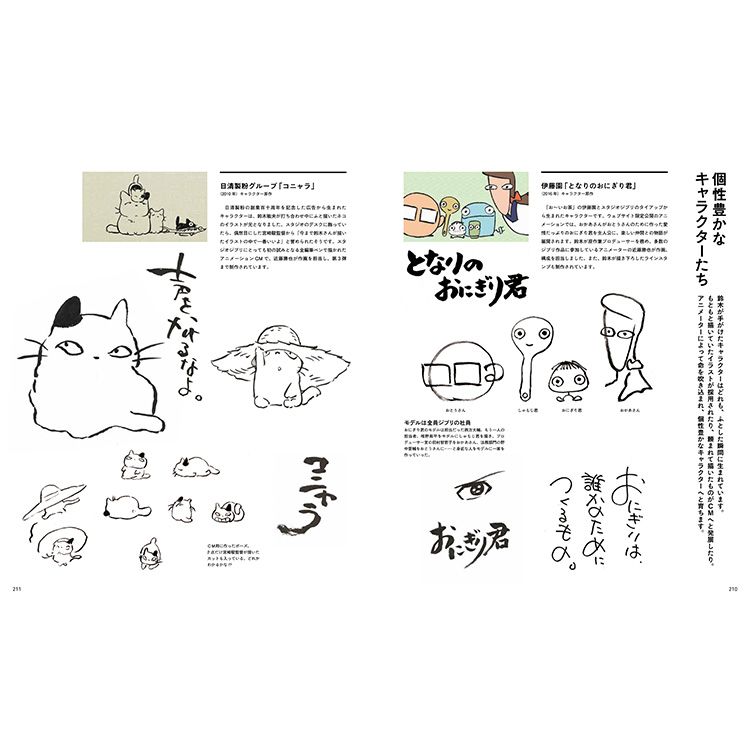 個性豊かな
キャラクターたち
鈴木が手がけたキャラクターはどれも、ふとした瞬間に生まれています。
もともと描いていたイラストが採用されたり、頼まれて描いたものがCMへと発展したり。
アニメーターによって命を吹き込まれ、個性豊かなキャラクターへと育ちます。
伊藤園「となりのおにぎり君」
(2016年) キャラクター原作
「お〜いお茶」の伊藤園とスタジオジブリのタイアップか
ら生まれたキャラクターです。ウェブサイト限定公開のアニ
メーションでは、おかあさんがおとうさんのために作った愛
情たっぷりのおにぎり君を主人公に、楽しい仲間との物語が
展開されます。鈴木が原作兼プロデューサーを務め、多数の
ジブリ作品に参加しているアニメーターの近藤勝也が作画、
構成を担当しました。また、鈴木が描き下ろしたラインスタ
ンプも制作されています。
となりの
おにぎり君
おとうさん
しゃもじ君
おにぎり君
おかあさん
モデルは全員ジブリの社員
おにぎり君
おにぎりは、
誰かのために
つくるもの。
210
日清製粉グループ「コニャラ」
(2010年) キャラクター原作
日清製粉の創業百十周年を記念した広告から生まれた
キャラクターは、鈴木敏夫が打ち合わせ中にふと描いたネコ
のイラストが元となりました。鈴木のデスクに飾ってい
たら、偶然目にした宮崎駿監督から「今まで鈴木さんが描い
たイラストの中で一番いいよ」と誉められたそうです。スタ
ジオジブリにとっても初の試みとなる全編筆ペンで描かれた
アニメーションCMで、近藤勝也が作画を担当し、第3弾
まで制作されています。
コニャラ
CM用に作ったポーズ。
2点だけ宮崎駿監督が描いた
カットも入っている。どれか
わかるかな!?
211